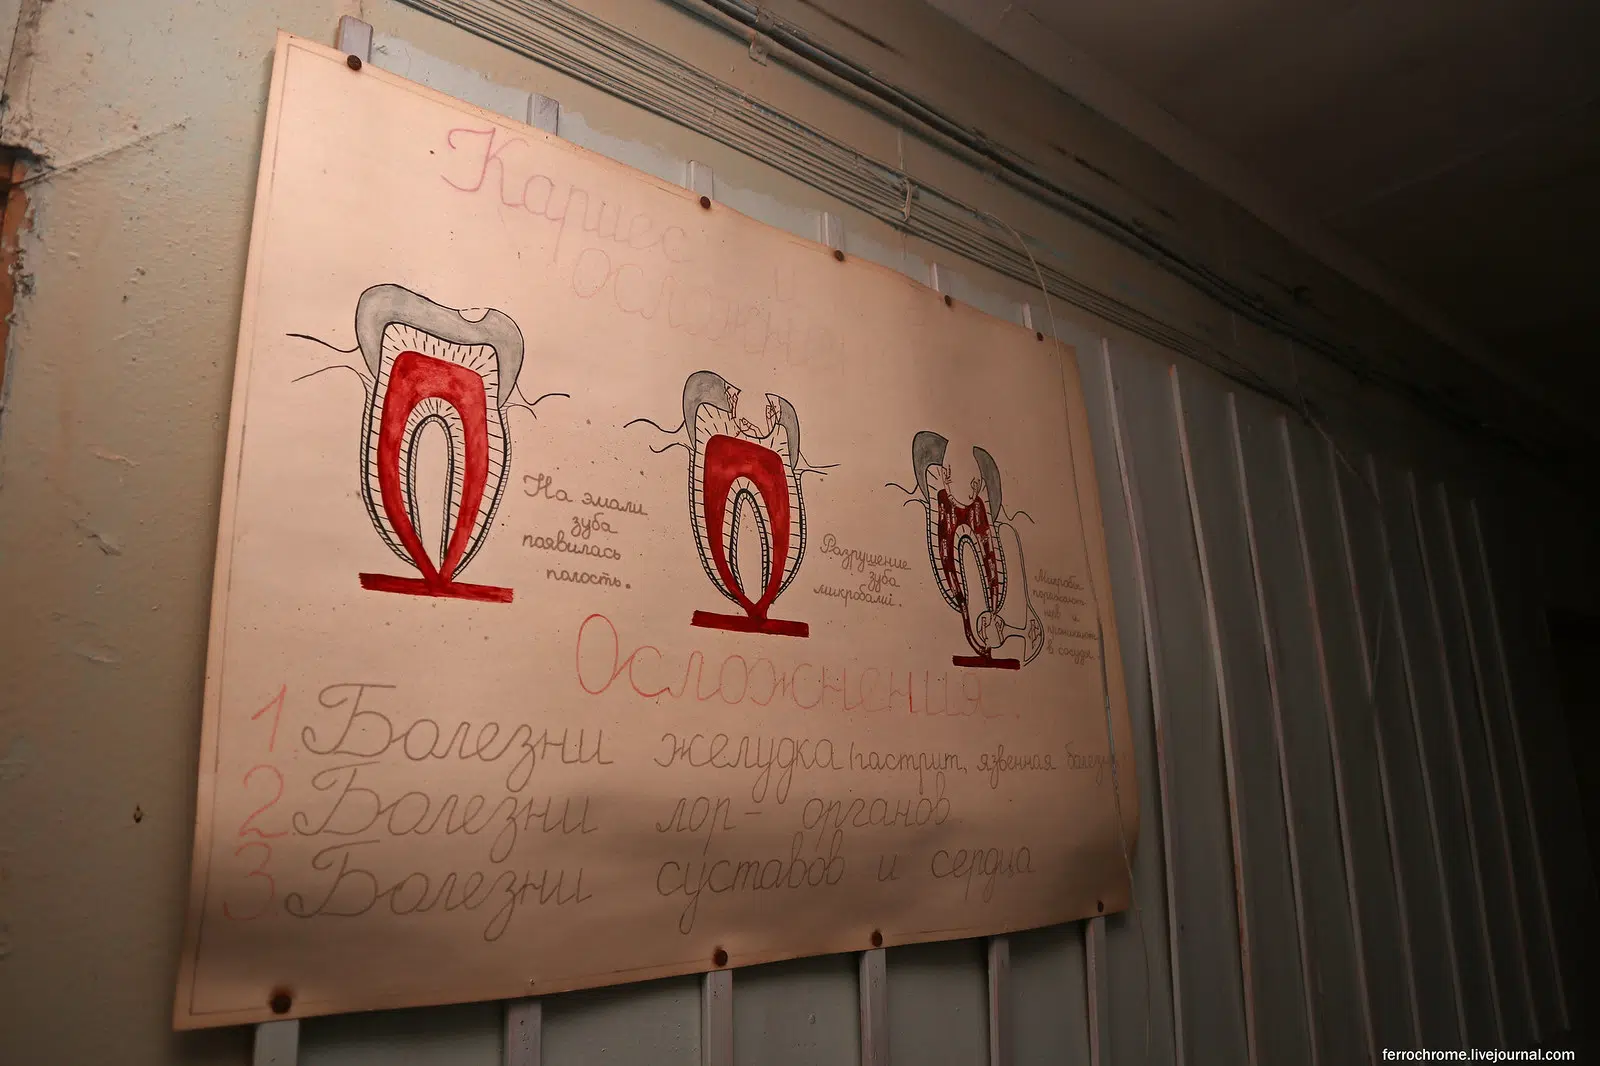 Кариес и
осложне
На эмали
зуба
появилась
полость.
Разрушение
зуба
микробами.
Микробы
поражают
нерв и
проникают
в сосуды.
Осложнения.
1. Болезни желудка (гастрит, язвенная болезнь
2. Болезни лор-органов
3. Болезни суставов и сердца
ferrochrome.livejournal.com